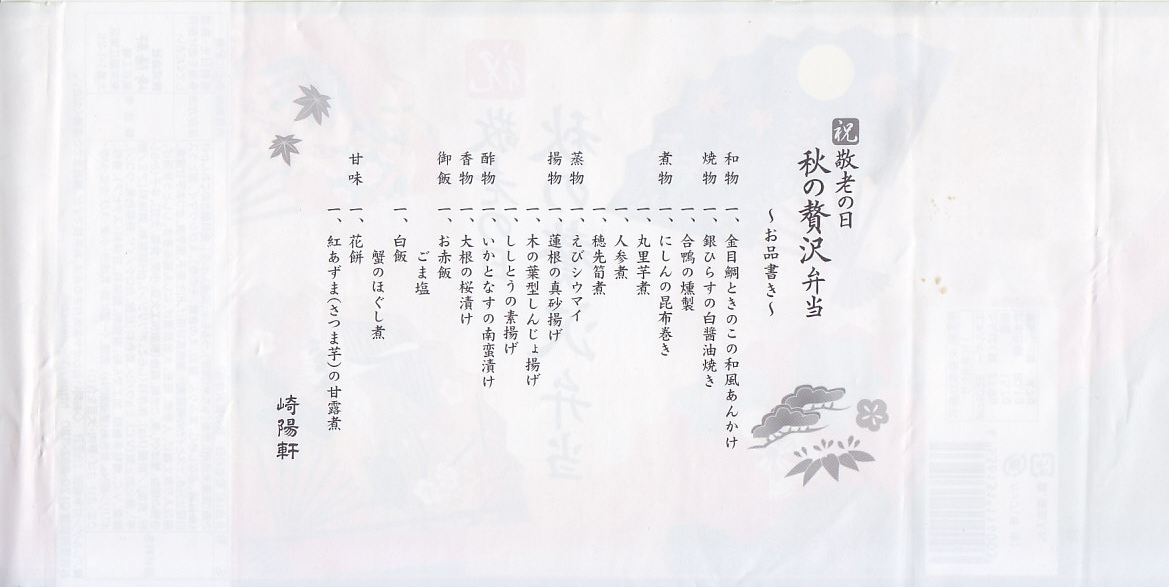 祝
敬老の日
秋の贅沢弁当
～お品書き～
和物 一、金目鯛ときのこの和風あんかけ
焼物 一、銀ひらすの白醤油焼き
一、合鴨の燻製
煮物 一、にしんの昆布巻き
一、丸里芋煮
一、人参煮
一、穂先筍煮
蒸物 一、えびシウマイ
揚物 一、蓮根の真砂揚げ
一、木の葉型しんじょ揚げ
一、ししとうの素揚げ
酢物 一、いかとなすの南蛮漬け
香物 一、大根の桜漬け
御飯 一、お赤飯
ごま塩
一、白飯
蟹のほぐし煮
甘味 一、花餅
一、紅あずま(さつま芋)の甘露煮
崎陽軒